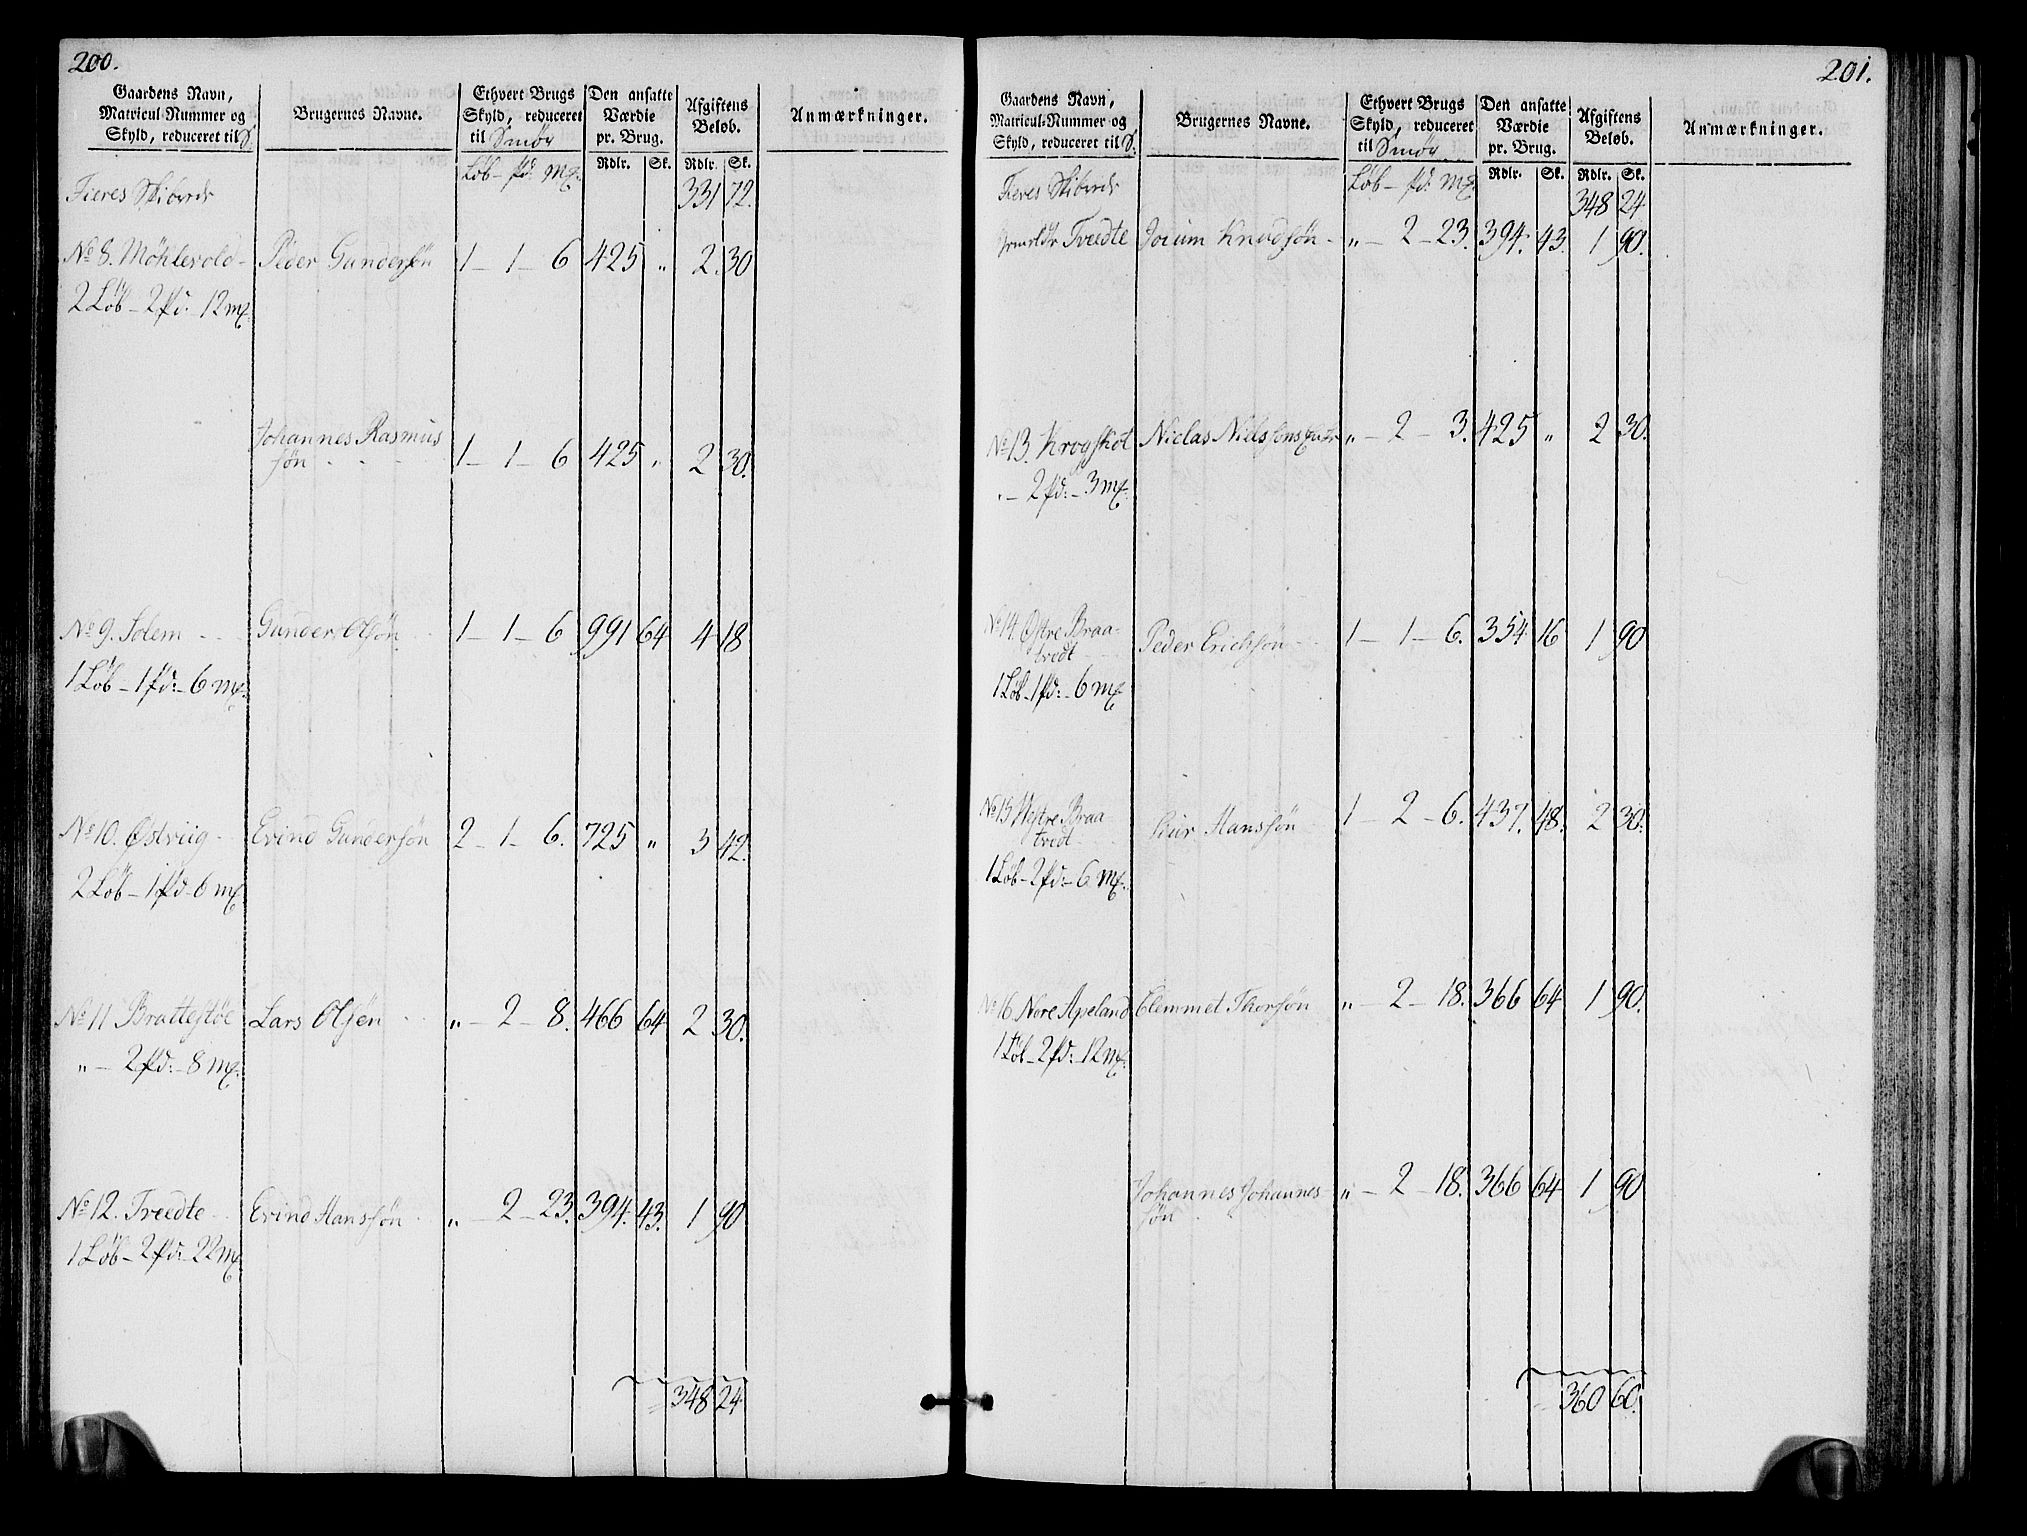 200.
Gaardens Navn,
Matricul-Nummer og
Skyld, reduceret til S.
Brugernes Navne.
Ethvert Brugs
Skyld, reduceret
til Smör
Den ansatte
Værdie
pr. Brug.
Afgiftens
Beløb.
Anmærkninger.
Löb – pd: mk:
Rdlr. Sk. Rdlr. Sk.
Fieres Skibrede 331 72.
No 8. Möhlevold – Peder Gundersön 1 – 1 – 6 425 " 2. 30
2 Löb – 2 pd. 12 mk.
Johannes Rasmus
sön 1 – 1 – 6 425 " 2 30.
No 9. Solem Gunder Olsön 1 – 1 – 6 991 64 4 18
1 Löb – 1 pd: – 6 mk.
No 10. Østviig Evind Gundersön 2 – 1 – 6. 725 " 3 42.
2 Löb – 1 pd – 6 mk
No 11 Brattestöe Lars Olsen " – 2 – 8. 466 64 2 30.
" – 2 pd: – 8 mk.
No 12. Tveedte Evind Hanssön " – 2 – 23. 394. 43. 1 90
1 Löb – 2 pd: – 22 mk
348 24
201.
Gaardens Navn,
Matricul-Nummer og
Skyld, reduceret til S.
Brugernes Navne.
Ethvert Brugs
Skyld, reduceret
til Smör
Den ansatte
Værdie
pr. Brug.
Afgiftens
Beløb.
Anmærkninger.
Löb – pd: mk.
Rdlr. Sk. Rdlr. Sk.
Fieres Skibrede 348 24
Tveedte Joium Knudsön – " – 2 – 23. 394. 43. 1 90.
No 13. Krogshol Niclas Nielssens " – 2 – 3. 425 " 2 30.
" – 2 pd: – 3 mk.
No 14. Østre Braa-
tvedt Peder Erichsön 1 – 1 – 6. 354 16 1 90
1 Löb – 1 pd: – 6 mk
No 15 Westre Braa-
tvedt Siur Hanssön 1 – 2 – 6. 437. 48. 2 30.
1 Löb – 2 pd: – 6 mk.
No 16. Nore Apeland Clemmet Thorsön " – 2 – 18. 366 64 1 90.
1 Löb – 2 pd: – 12 mk.
Johannes Johannes-
sön " – 2 – 18. 366 64 1 90
360 60.